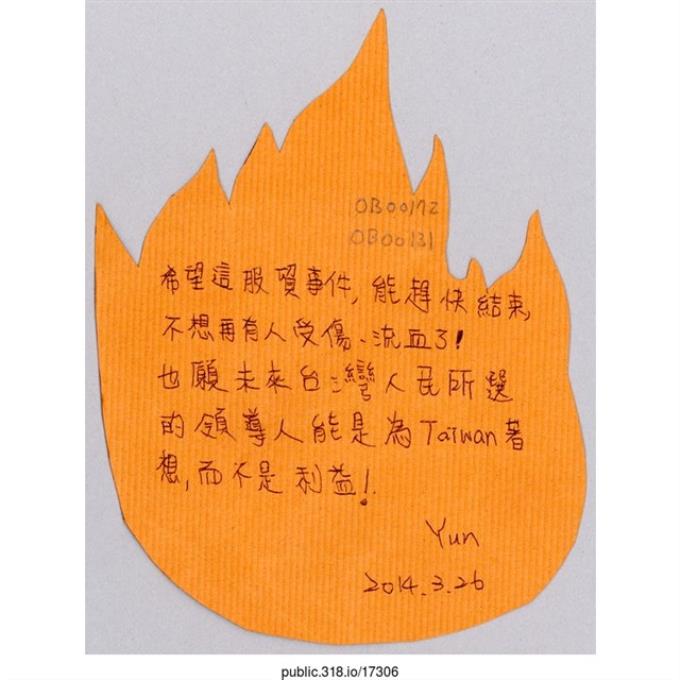 OB00172
OB00131
希望這服貿事件,能趕快結束,
不想再有人受傷、流血了!
也願未來台灣人民所選
的領導人能是為Taiwan著
想,而不是利益!
Yun
2014.3.26
public.318.io/17306